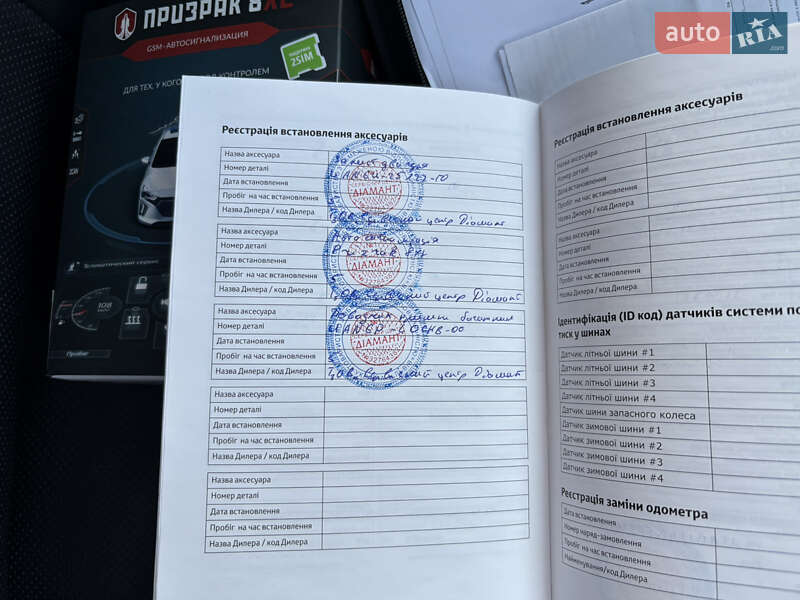 ПРИЗРАК 8XL
GSM-АВТОСИГНАЛИЗАЦИЯ
2SIM
ДЛЯ ТЕХ, У КОГО КОНТРОЛЕМ
Телематический сервис
Пробег
auto RIA.com
Реєстрація встановлення аксесуарів
Назва аксесуара Захист двигуна
Номер деталі
Дата встановлення ДІАМАНТ
Пробіг на час встановлення
Назва Дилера / код Дилера ТОВ центр Діамант
Назва аксесуара Авто сигналізація
Номер деталі Призрак
Дата встановлення ДІАМАНТ
Пробіг на час встановлення
Назва Дилера / код Дилера ТОВ центр Діамант
Назва аксесуара
Номер деталі
Дата встановлення ДІАМАНТ
Пробіг на час встановлення
Назва Дилера / код Дилера ТОВ центр Діамант
Назва аксесуара
Номер деталі
Дата встановлення
Пробіг на час встановлення
Назва Дилера / код Дилера
Назва аксесуара
Номер деталі
Дата встановлення
Пробіг на час встановлення
Назва Дилера / код Дилера
Реєстрація встановлення аксесуарів
Назва аксесуара
Номер деталі
Дата встановлення
Пробіг на час встановлення
Назва Дилера / код Дилера
Назва аксесуара
Номер деталі
Дата встановлення
Пробіг на час встановлення
Назва Дилера / код Дилера
Ідентифікація (ID код) датчиків системи
тиск у шинах
Датчик літньої шини #1
Датчик літньої шини #2
Датчик літньої шини #3
Датчик літньої шини #4
Датчик шини запасного колеса
Датчик зимової шини #1
Датчик зимової шини #2
Датчик зимової шини #3
Датчик зимової шини #4
Реєстрація заміни одометра
Дата встановлення
Номер наряд-замовлення
Пробіг на час встановлення
Найменування/код Дилера